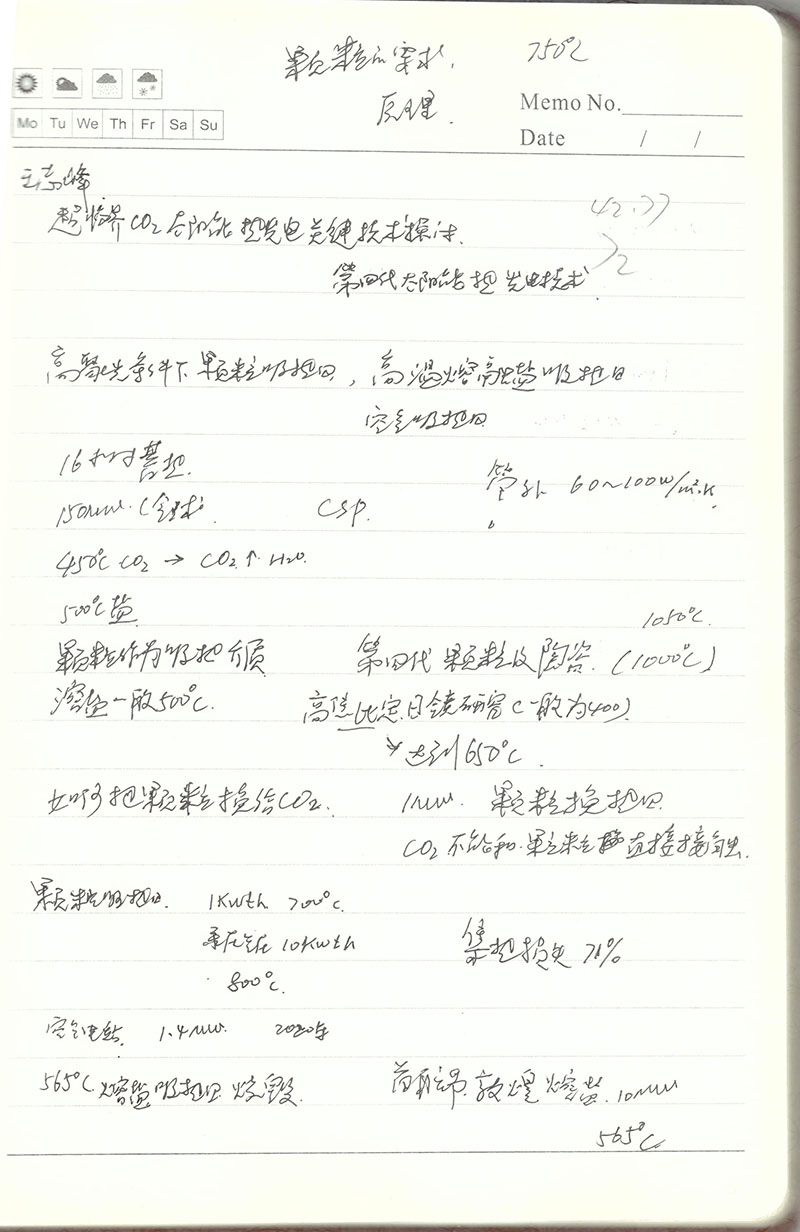 颗粒的要求. 750℃
原理.
Memo No.
Mo Tu We Th Fr Sa Su
Date / /
王志峰
超临界CO2太阳能热发电关键技术探讨.
42.77
72
第四代太阳能热发电技术
高聚光条件下颗粒吸热器, 高温熔融盐吸热器
空气吸热器
16小时蓄热.
管外 60~100w/m².k.
150MW.(全球) CSP.
450℃ CO2 → CO2↑ H2O.
500℃盐
1050℃.
颗粒作为吸热介质 第四代 颗粒及陶瓷. (1000℃)
熔盐一般500℃. 高倍比定日镜研究(一般为400).
达到650℃.
如何把颗粒换给CO2. 1MW. 颗粒换热器
CO2不能和颗粒直接接触.
颗粒吸热器. 1KWth 700℃.
现在在10KWth
集热损失 71%
800℃.
空气电站. 1.4MW. 2020年
565℃.熔盐吸热器烧毁. 首航 敦煌 熔盐.10MW
565℃